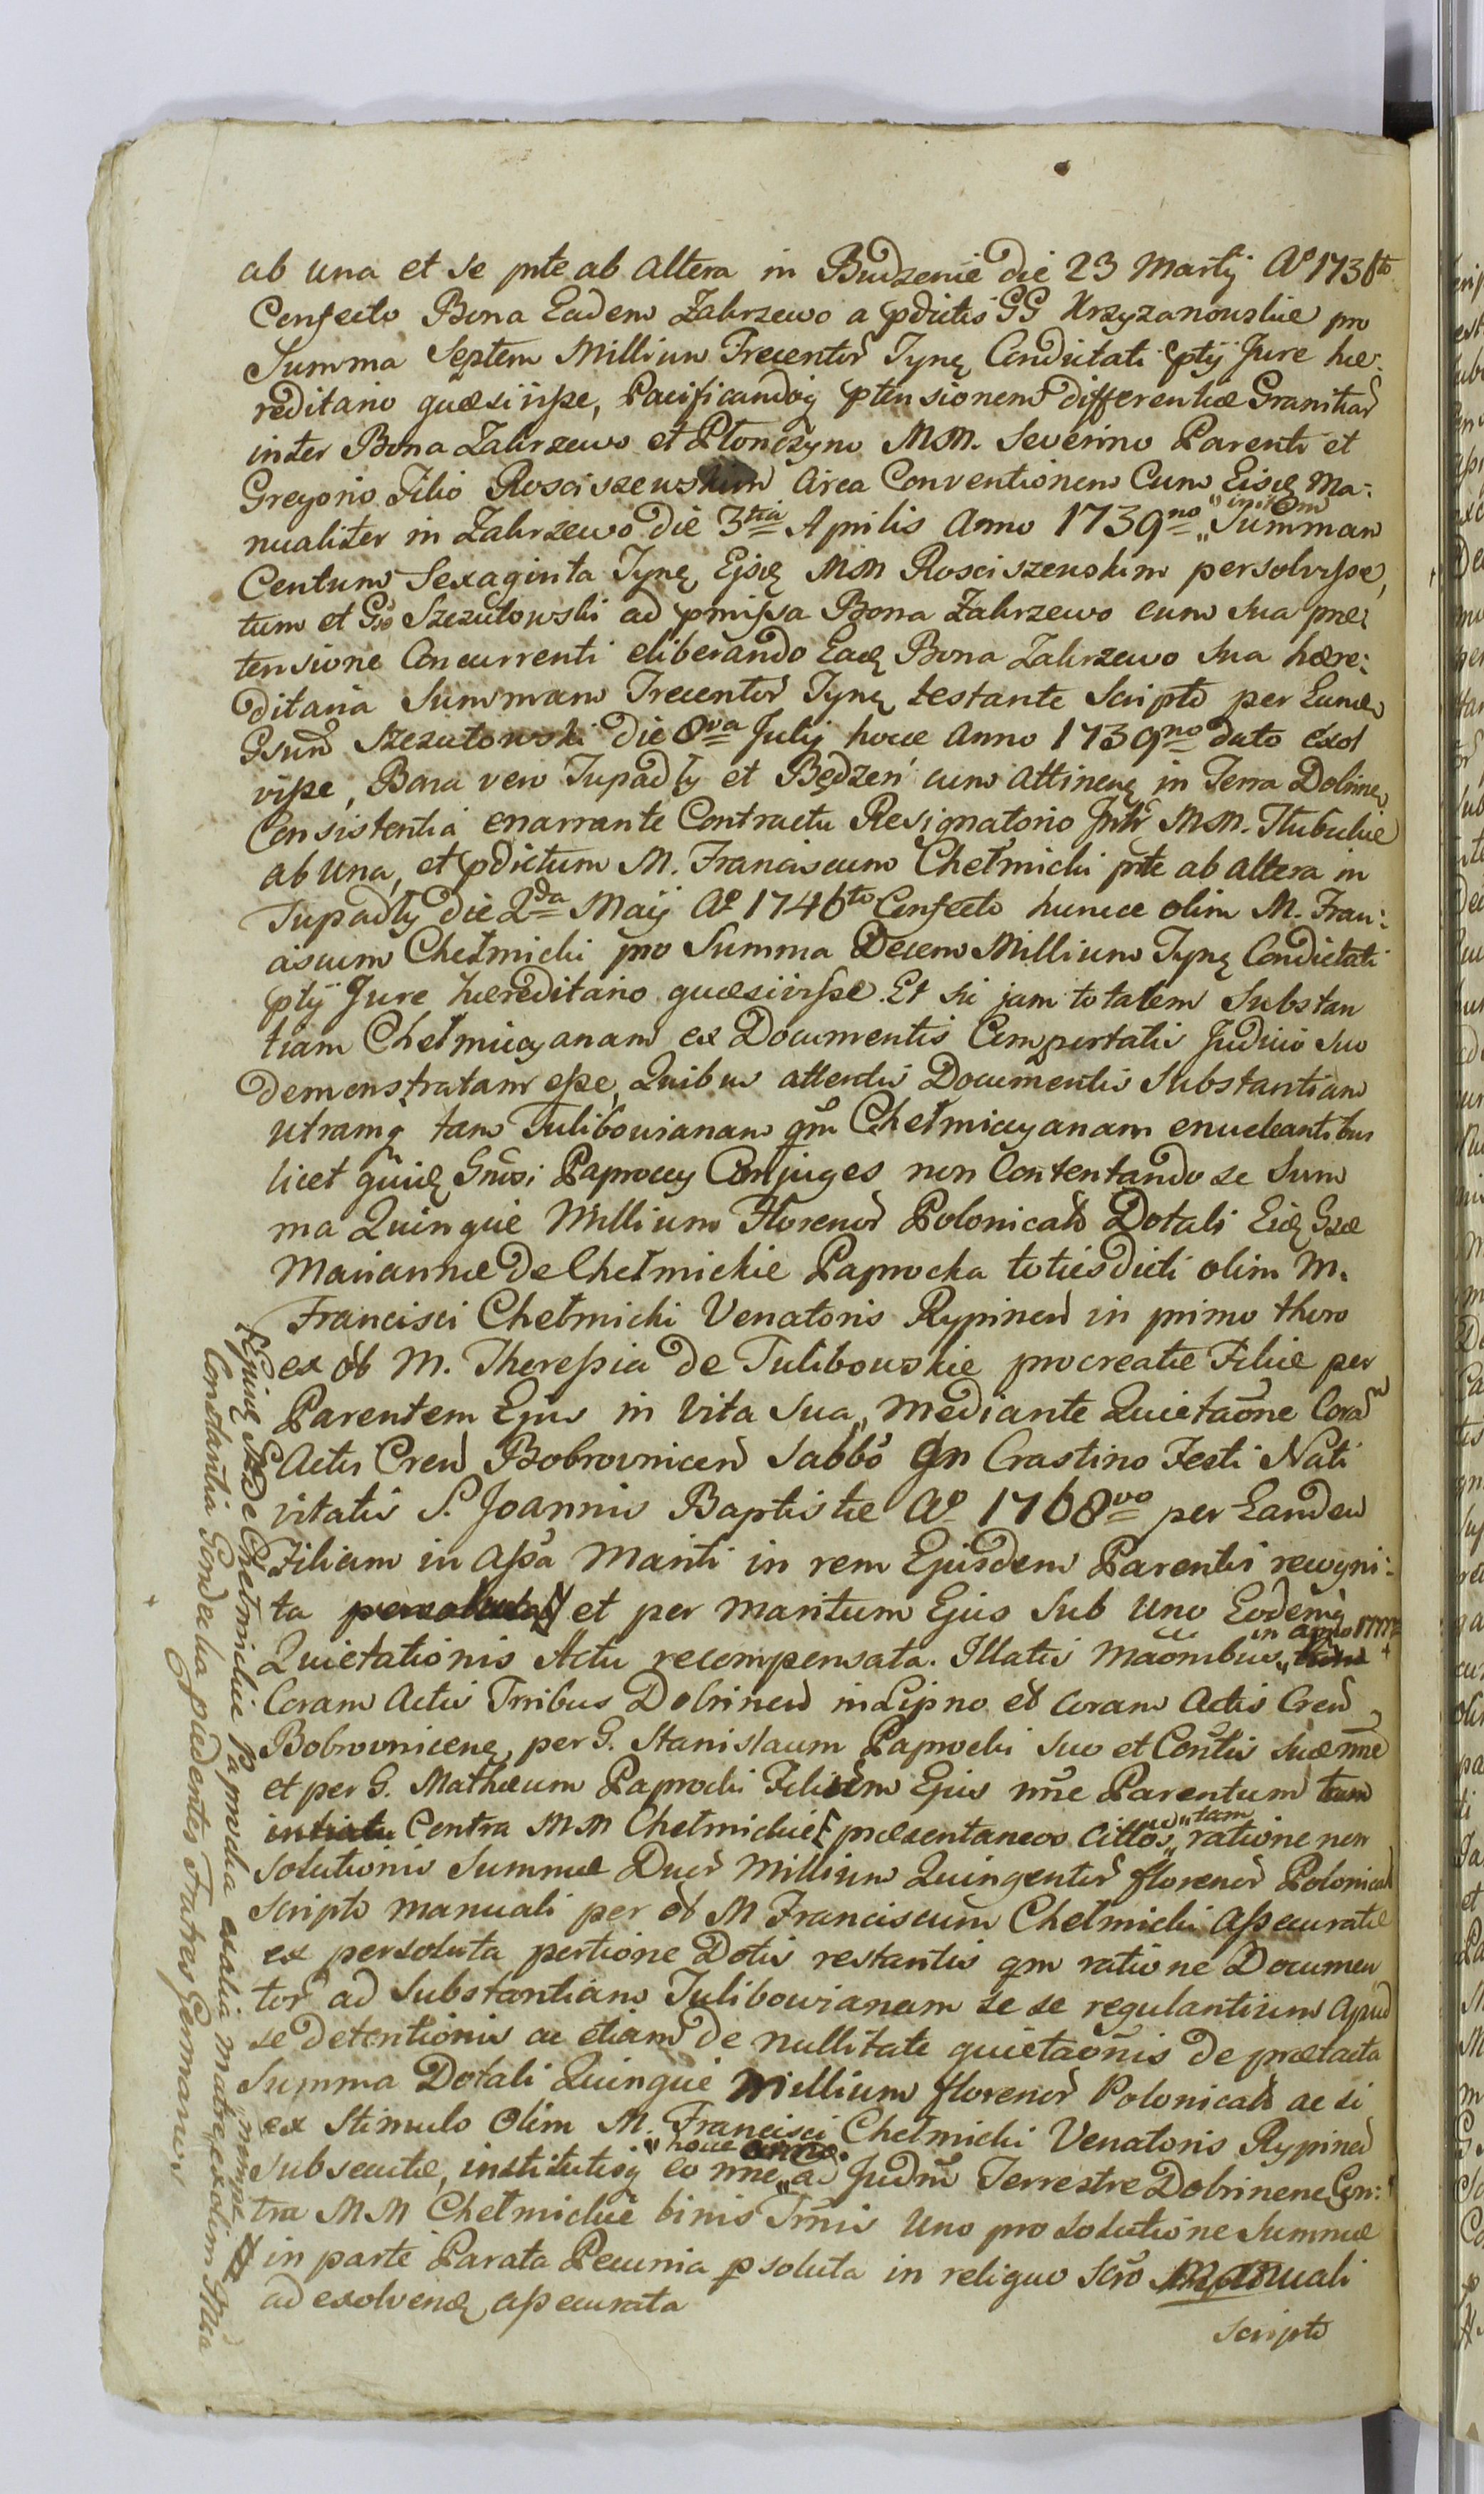 ab una et se pnte ab altera in Budzenie die 23 Martij Aº 1736to
Confecto Bona Eadem Zakrzewo a pdictis GG Krzyzanowskie pro
Summa Septem Millium Trecentor Tynf Condictati ptij Jure hæ:
reditario quæsiisse, Pacificandoq ptensionem differentiæ Granitiar
inter Bona Zakrzewo et Płonczyno MM. Severino Parenti et
Gregorio Filio Rosciszewskim circa Conventionem Cum Eisd Ma:
nualiter in Zakrzewo die 3tia Aprilis Anno 1739no „initam Summam
Centum Sexaginta Tynf Ejsd MM Rosciszewskim persolvisse,
tum et Gso Szczutowski ad pmissa Bona Zakrzewo cum sua præ:
tensione Concurrenti eliberando Ead Bona Zakrzewo sua hære:
ditaria Summam Trecentor Tynf testante Scripto per Eund
Gsum Szczutowski die 8va Julij hocce Anno 1739no dato exol
visse, Bona vero Tupadły et Będzeń cum attinen in Terra Dobrinen
Consistentia enarrante Contractu Resignatorio Intr MM. Hubickie
ab una, et pdictum M. Franciscum Chełmicki pnte ab altera in
Tupadły die 2da Maij Aº 1746to Confecto huncce olim M. Fran:
ciscum Chełmicki pro Summa Decem Millium Tynf Condictati
ptij Jure hæreditario quæsivisse. Et sic jam totalem Substan
tiam Chełmicyanam ex Documentis Comportatis Judicio suo
demonstratam esse, Quibus attentis Documentis Substantiam
utramq tam Tulibowianam qm Chełmicyanam enucleantibus
licet Gnosi Paproccy Conjuges non Contentando se Sum
ma Quinque Millium Florenor Polonical Dotali Eid Gsæ
Mariannæ De Chełmickie Paprocka totiesdicti olim M.
Francisci Chełmicki Venatoris Rypinen in primo thoro
ex ol M. Theressia de Tulibowskie procreatæ Filiæ per
Parentem Ejus in vita sua, mediante Quietaõne Coram
Actis Cren Bobrovnicen Sabbo in Crastino Festi Nati
vitatis S. Joannis Baptistæ Aº 1768vo per Eandem
Filiam in assa Mariti in rem Ejusdem Parentis recogni:
ta et per maritum Ejus Sub Uno Eodemq
Quietationis Actu recompensata. Illatis Mãonibus „in anno 1777
Coram Actis Trribus Dobrinen in Lipno et coram Actis Cren
Bobrovnicen, per G. Stanislaum Paprocki suo et Contis suæ nne
et per G. Mathæum Paprocki Filium Ejus nne Parentum
Contra MM Chełmickie præsentaneos citto „tam ratione non
solutionis Summæ Duor Millium Quingentor florenor Polonical
scripto manuali per ol M Franciscum Chełmicki assecuratæ
ex persoluta portione Dotis restantis qm ratione Documen
tor ad Substantiam Tulibowianam se se regulantium apud
se detentionis ac etiam de nullitate quietaõnis de prætacta
Summa Dotali Quinque Millium florenor Polonical ac si
ex Stimulo Olim M. Francisci Chełmicki Venatoris Rypinen
subsecutæ, institutisq eo nne „hocce anno ad Judm Terrestre Dobrinen Con:
tra MM Chełmickie binis Tmis Uno pro solutione Summæ
in parte Parata Pecunia psoluta in reliquo scro manuali
ad exolvend assecurata
scripto
Ejusd De Chełmickie Paprocka exalia matre, nempe exolim
Constantia Gondecka pcedentes Fratres Germanos